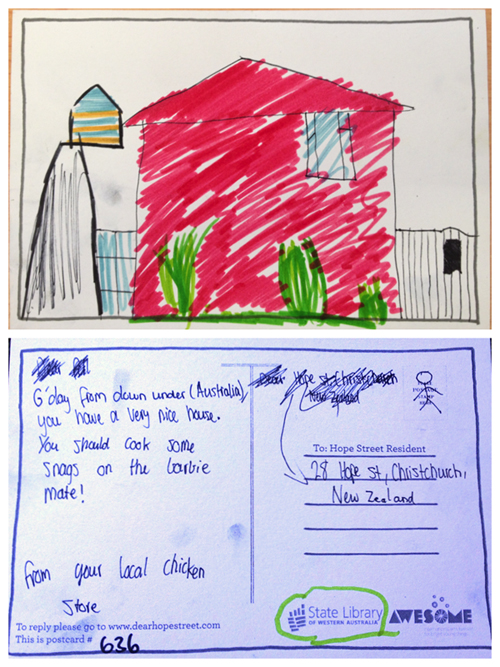 G'day from down under (Australia),
you have a very nice house.
You should cook some
snags on the barbie
mate!
from your local chicken
Store
To reply please go to www.dearhopestreet.com
This is postcard # 636
Hope st, Christchurch
New Zealand
POSTAGE
STAMP
HERE
To: Hope Street Resident
28 Hope st, Christchurch,
New Zealand
State Library
OF WESTERN AUSTRALIA
AWESOME